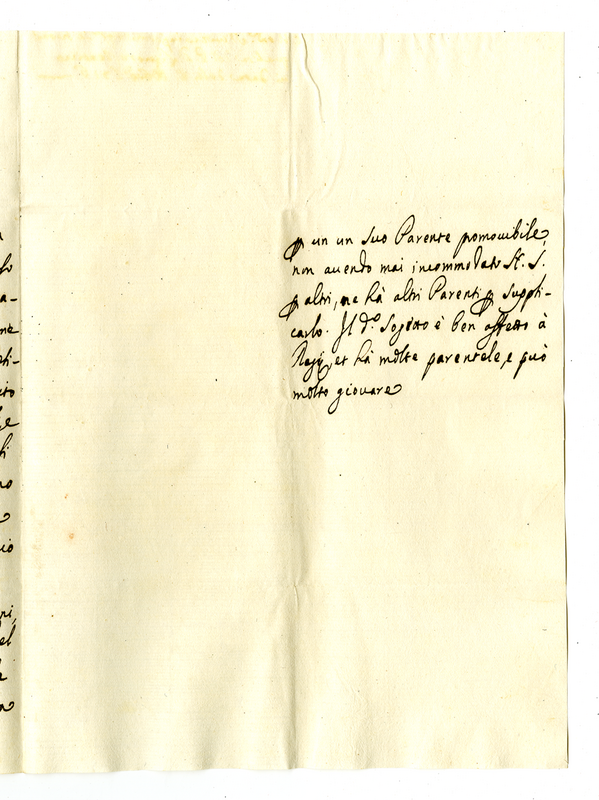 lo
a-
ne
ti-
ito
he
hi
no
io
ni,
el
un un suo Parente pomouibile,
non auendo mai incommodato
altri, ne hà altri Parenti suppli-
carlo. Il d.º Sogetto è ben affetto à
et hà molte parentele, e può
molto giouare